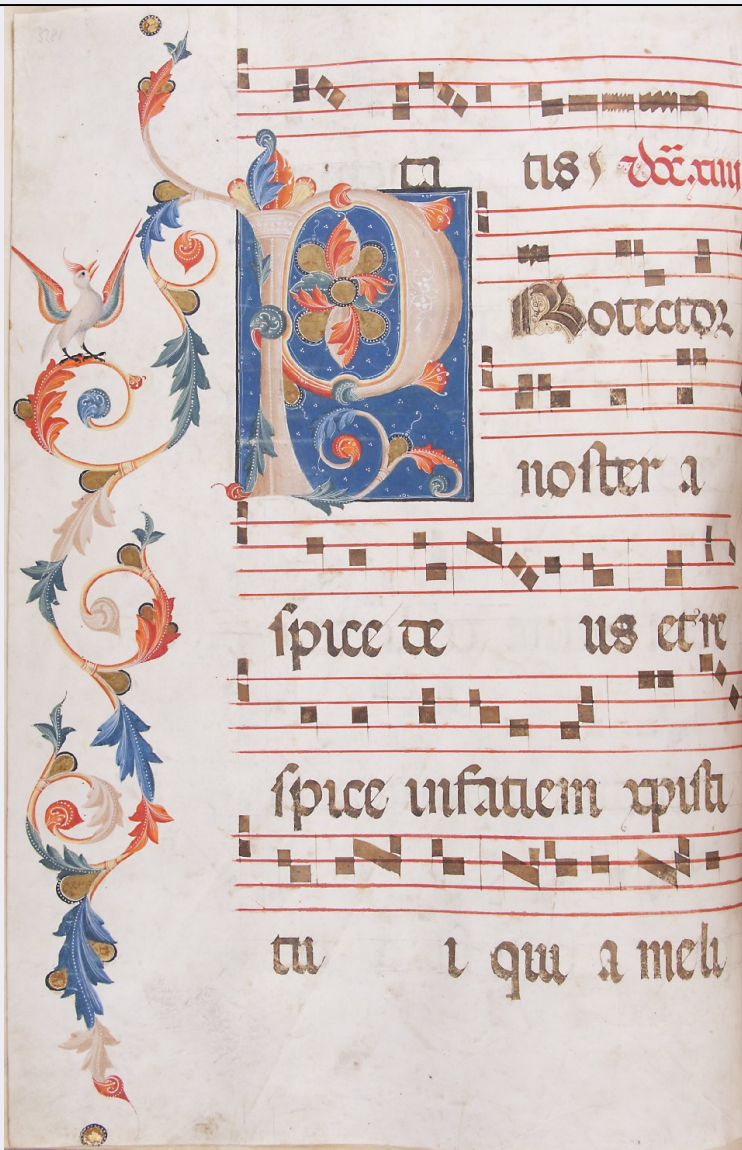 ta tis
P Rotector
noster a
spice de us et re
spice in faciem xpisti
tu i qui a meli